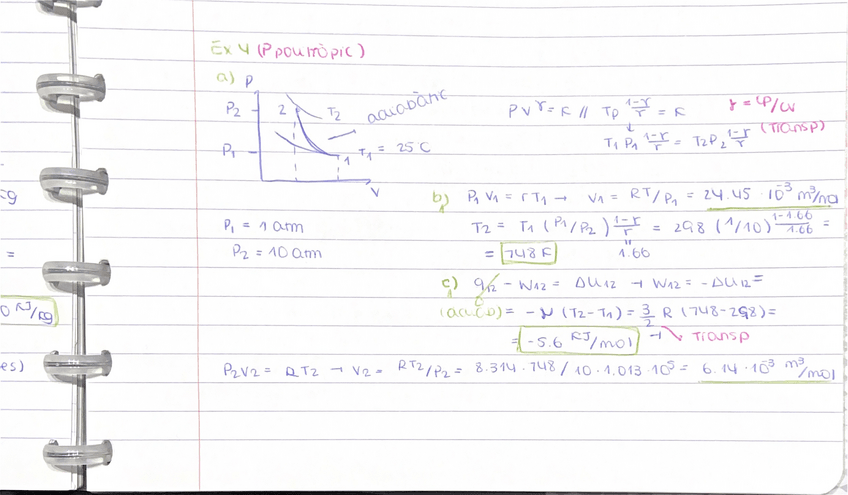 Ex 4 (P politròpic)
a)
P
P2 2 T2 adiabàtic
P1 1 T1 = 25°C
V
P V^γ = K // T P^(1-γ/γ) = K γ = CP/CV
T1 P1^(1-γ/γ) = T2 P2^(1-γ/γ) (Transp)
P1 = 1 atm
P2 = 10 atm
b) P1 V1 = r T1 → V1 = RT/P1 = 24.45 · 10^-3 m³/mol
T2 = T1 (P1/P2)^(1-γ/γ) = 298 (1/10)^(1-1.66/1.66) =
= 748 K 1.66
c) q12 - W12 = ΔU12 → W12 = -ΔU12 =
= - (T2-T1) = 3/2 R (748-298) =
= -5.6 KJ/mol → Transp
P2V2 = RT2 → V2 = RT2/P2 = 8.314 · 748 / 10 · 1.013 · 10^5 = 6.14 · 10^-3 m³/mol
Eg
=
0 KJ/Kg
es)